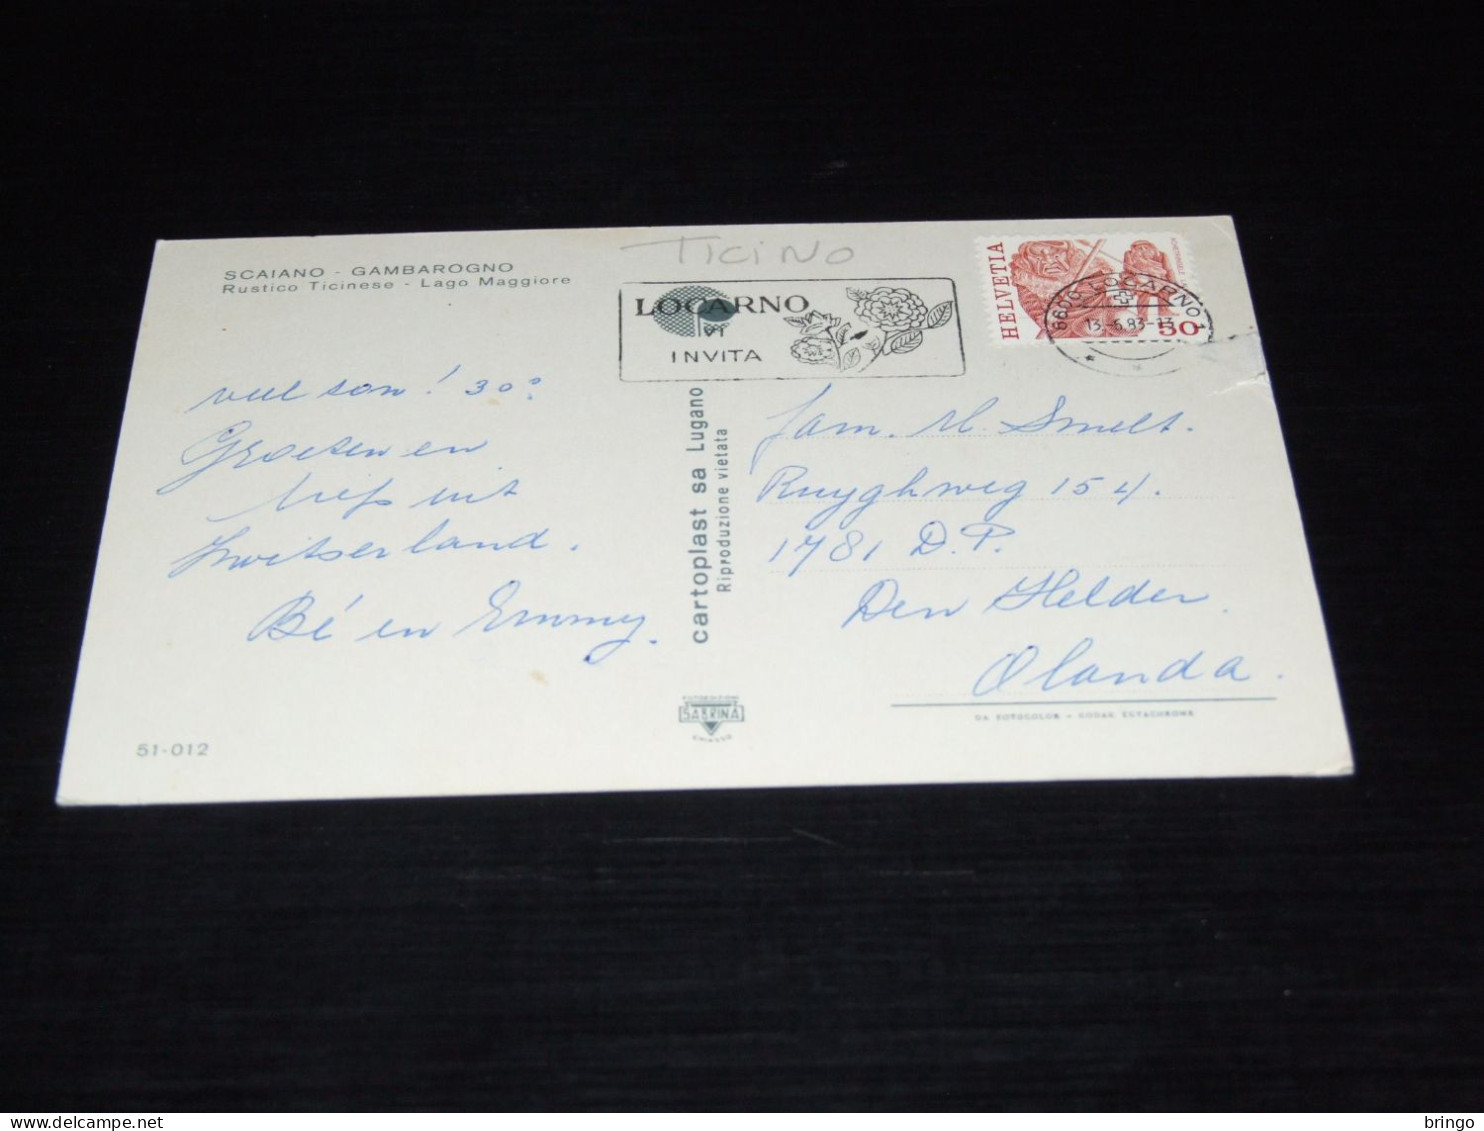 Ticino
SCAIANO - GAMBAROGNO
Rustico Ticinese - Lago Maggiore
LOCARNO
VI
INVITA
HELVETIA
50
6600 LOCARNO 1
13.-6.83-
veel son! 30°
Groeten en
liefs uit
Zwitserland.
Bé en Emmy.
cartoplast sa Lugano
Riproduzione vietata
Fam. M. Smelt.
Ruyghweg 154.
1781 D.P.
Den Helder.
Olanda.
SABRINA
CHIASSO
DA FOTOCOLOR - KODAK EKTACHROME
51-012
bringo